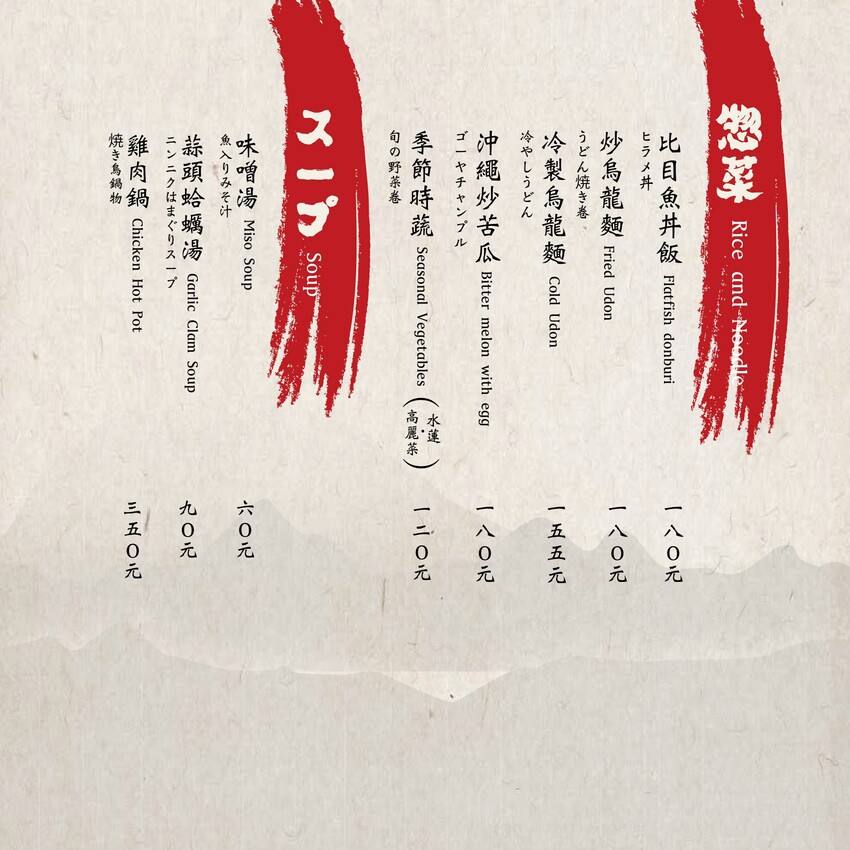 惣菜 Rice and Noodle
比目魚丼飯 Flatfish donburi 一八〇元
ヒラメ丼
炒烏龍麵 Fried Udon 一八〇元
うどん焼き巻
冷製烏龍麵 Cold Udon 一五五元
冷やしうどん
沖繩炒苦瓜 Bitter melon with egg 一八〇元
ゴーヤチャンプル
季節時蔬 Seasonal Vegetables (水蓮・高麗菜) 一二〇元
旬の野菜巻
スープ Soup
味噌湯 Miso Soup 六〇元
魚入りみそ汁
蒜頭蛤蠣湯 Garlic Clam Soup 九〇元
ニンニクはまぐりスープ
雞肉鍋 Chicken Hot Pot 三五〇元
焼き鳥鍋物